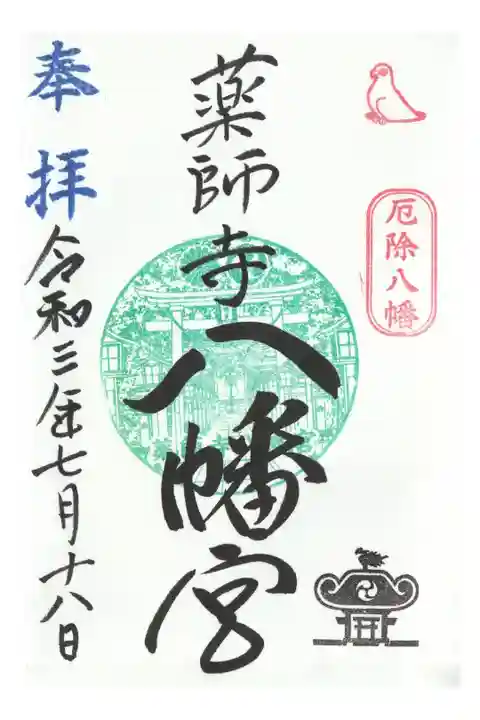 厄除八幡
薬師寺八幡宮
奉拝
令和三年七月十八日